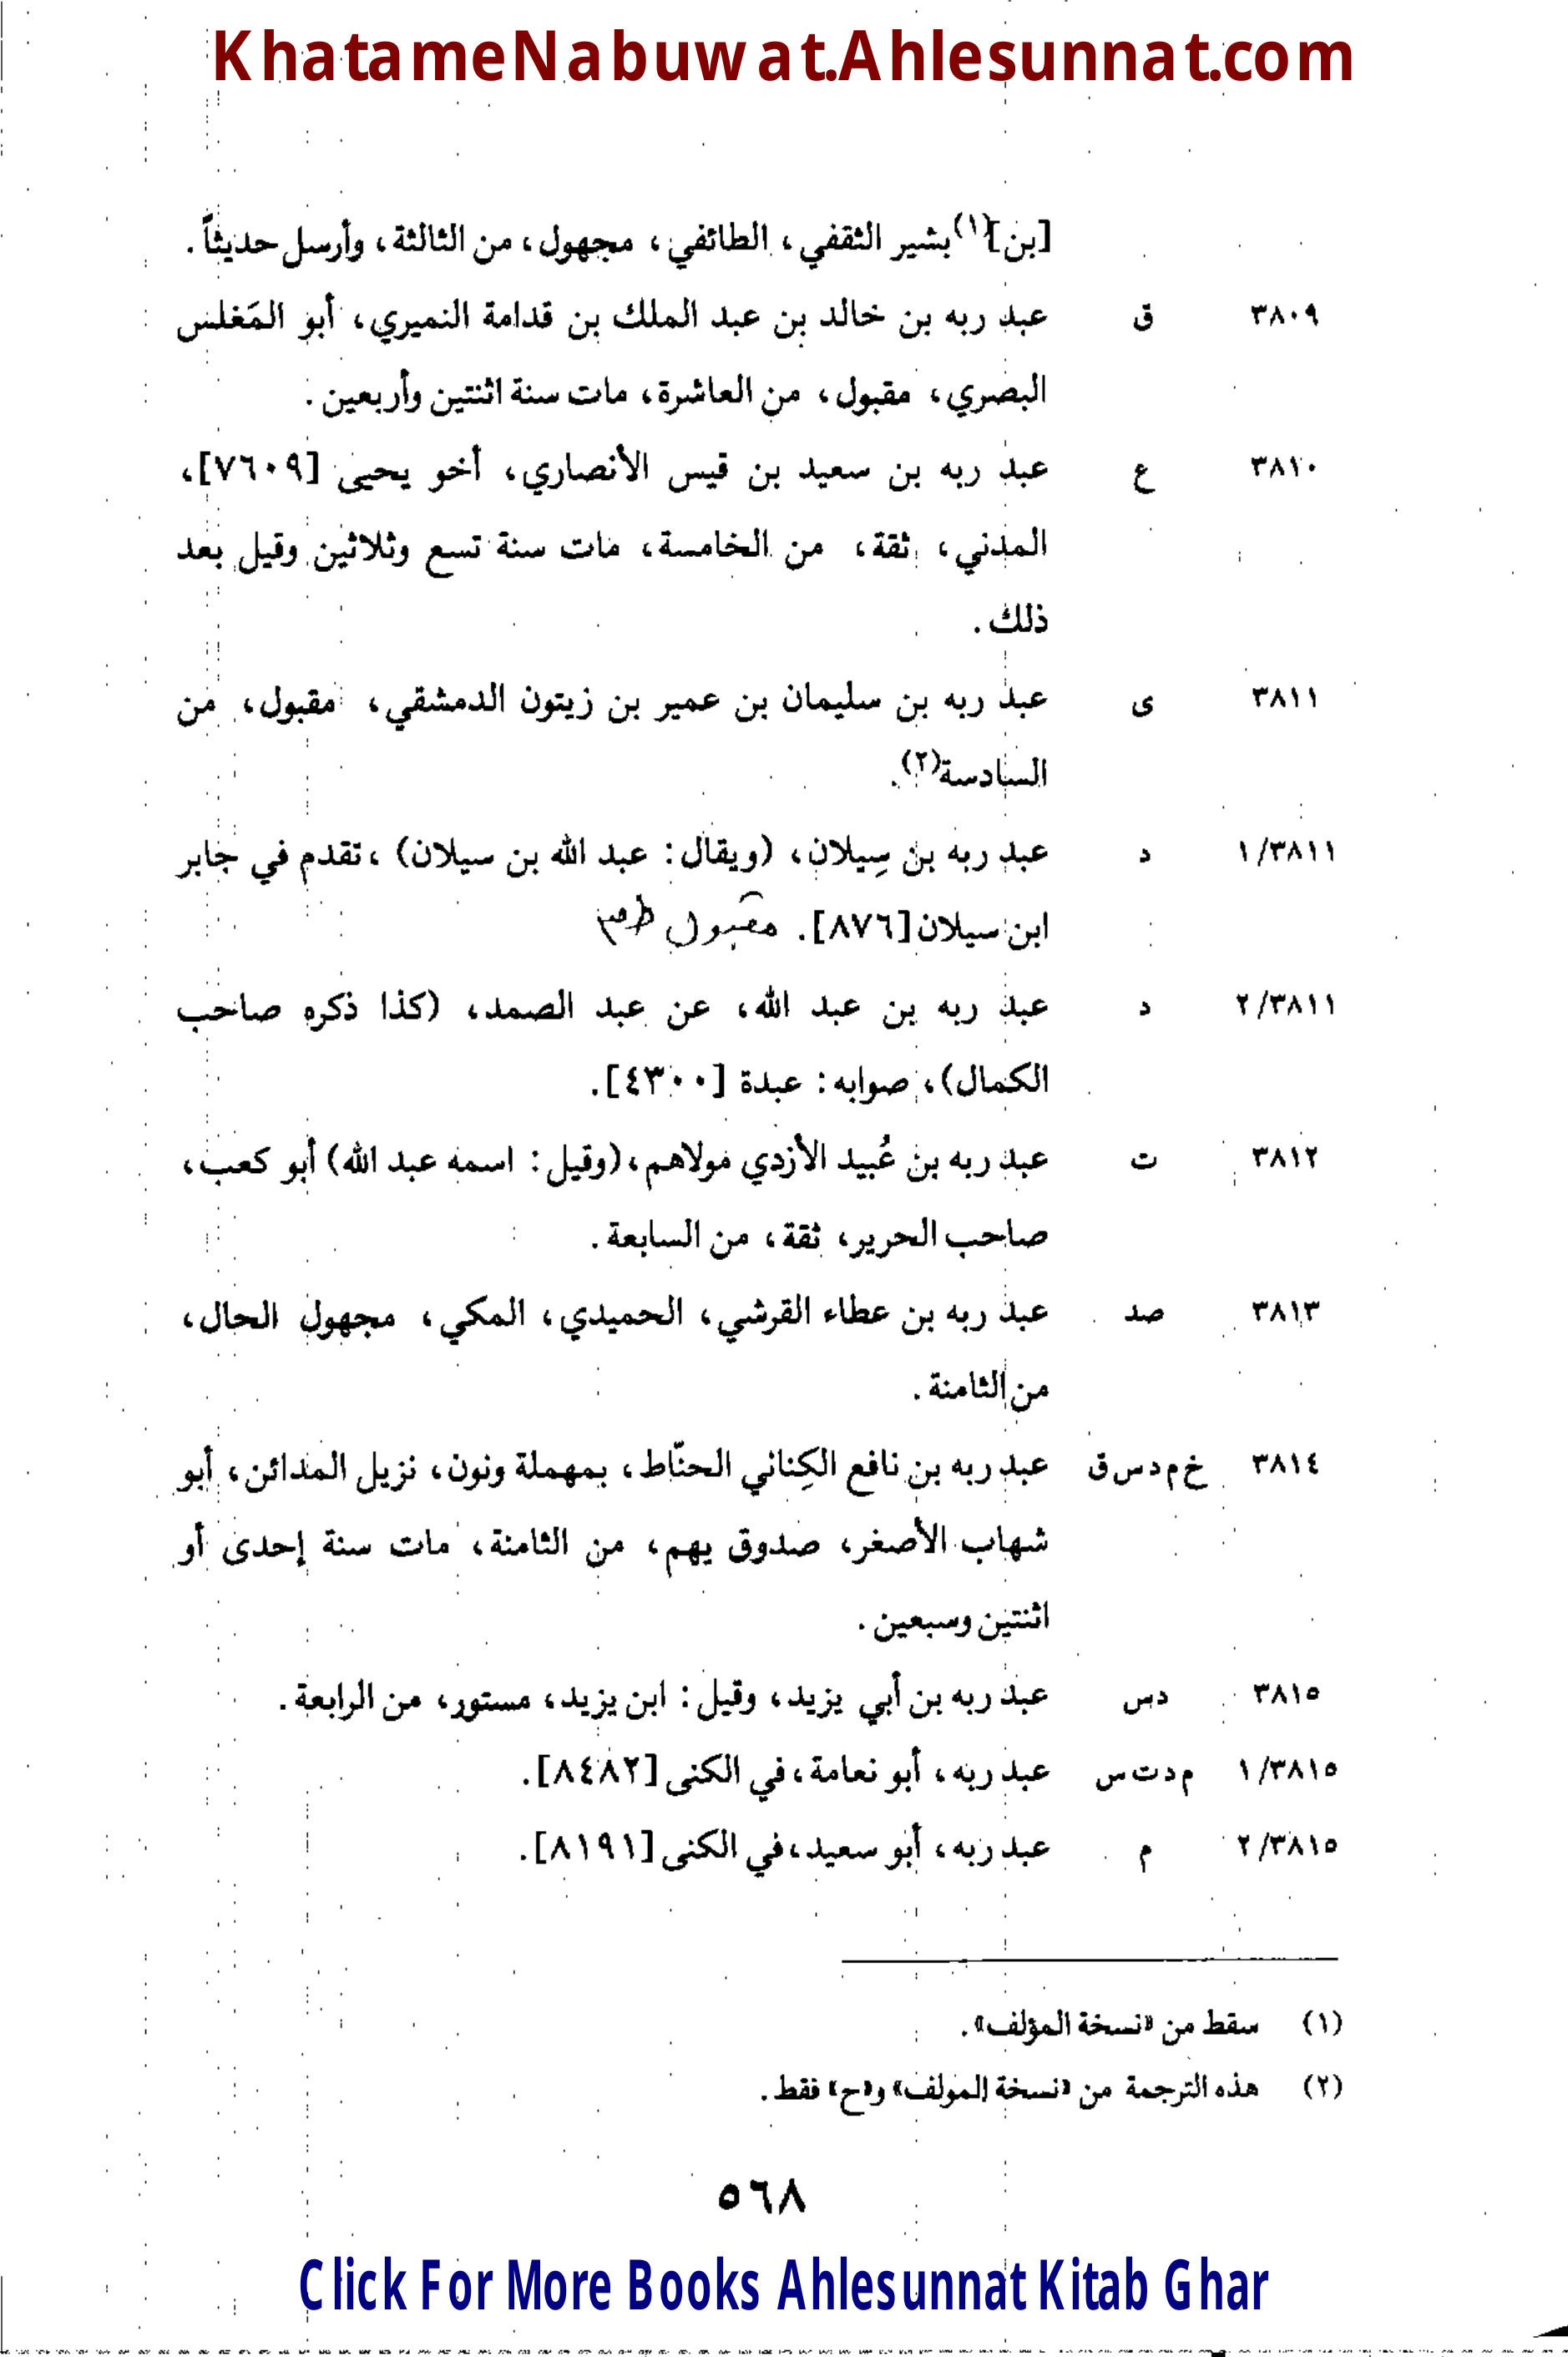 KhatameNabuwat.Ahlesunnat.com
[بن](١) بشير الثقفي، الطائفي، مجهول، من الثالثة، وأرسل حديثاً.
٣٨٠٩ ق عبد ربه بن خالد بن عبد الملك بن قدامة النميري، أبو المَغلس
البصري، مقبول، من العاشرة، مات سنة اثنتين وأربعين.
٣٨١٠ ع عبد ربه بن سعيد بن قيس الأنصاري، أخو يحيى [٧٦٠٩]،
المدني، ثقة، من الخامسة، مات سنة تسع وثلاثين وقيل بعد
ذلك.
٣٨١١ ى عبد ربه بن سليمان بن عمير بن زيتون الدمشقي، مقبول، من
السادسة(٢).
٣٨١١/١ د عبد ربه بن سِيلان، (ويقال: عبد الله بن سيلان)، تقدم في جابر
ابن سيلان [٨٧٦]. مقبول
٣٨١١/٢ د عبد ربه بن عبد الله، عن عبد الصمد، (كذا ذكره صاحب
الكمال)، صوابه: عبدة [٤٣٠٠].
٣٨١٢ ت عبد ربه بن عُبيد الأزدي مولاهم، (وقيل: اسمه عبد الله) أبو كعب،
صاحب الحرير، ثقة، من السابعة.
٣٨١٣ صد عبد ربه بن عطاء القرشي، الحميدي، المكي، مجهول الحال،
من الثامنة.
٣٨١٤ خ م د س ق عبد ربه بن نافع الكِناني الحنّاط، بمهملة ونون، نزيل المدائن، أبو
شهاب الأصغر، صدوق يهم، من الثامنة، مات سنة إحدى أو
اثنتين وسبعين.
٣٨١٥ د س عبد ربه بن أبي يزيد، وقيل: ابن يزيد، مستور، من الرابعة.
٣٨١٥/١ م د ت س عبد ربه، أبو نعامة، في الكنى [٨٤٨٢].
٣٨١٥/٢ م عبد ربه، أبو سعيد، في الكنى [٨١٩١].
(١) سقط من «نسخة المؤلف».
(٢) هذه الترجمة من «نسخة المولف» و«ح» فقط.
٥٦٨
Click For More Books Ahlesunnat Kitab Ghar